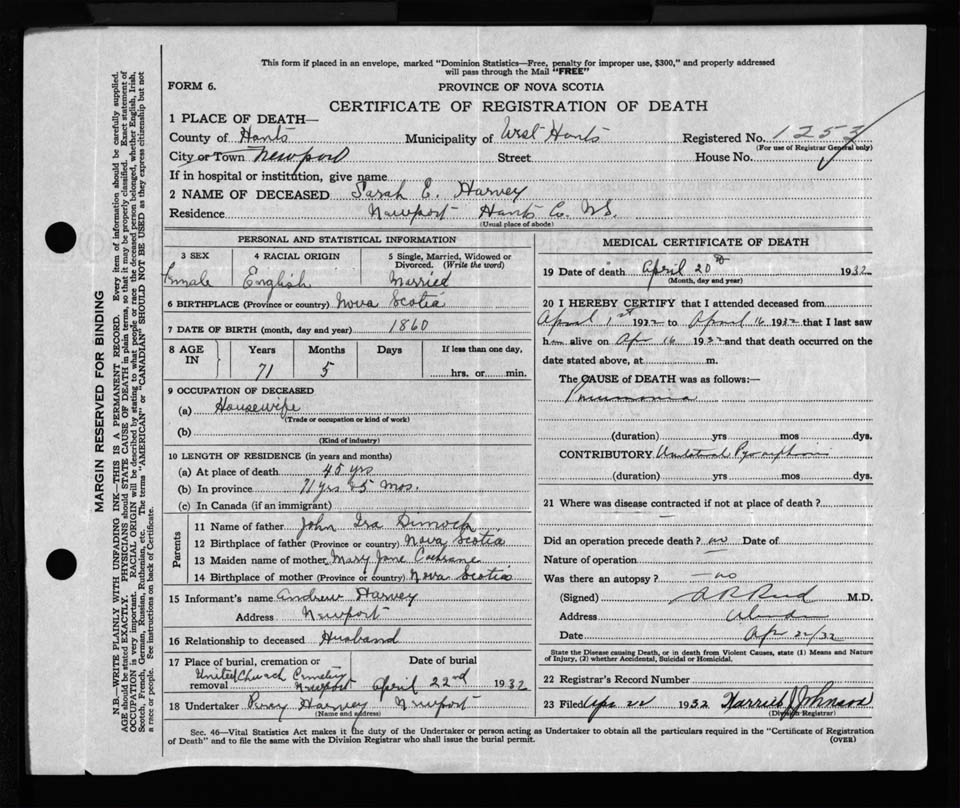 This form if placed in an envelope, marked "Dominion Statistics—Free, penalty for improper use, $300," and properly addressed
will pass through the Mail "FREE"
FORM 6.
PROVINCE OF NOVA SCOTIA
CERTIFICATE OF REGISTRATION OF DEATH
1 PLACE OF DEATH—
County of Hants Municipality of West Hants Registered No. 1253
(For use of Registrar General only)
City or Town Newport Street House No.
If in hospital or institution, give name
2 NAME OF DECEASED Sarah E. Harvey
Residence Newport Hants Co. N.S.
(Usual place of abode)
PERSONAL AND STATISTICAL INFORMATION
3 SEX 4 RACIAL ORIGIN 5 Single, Married, Widowed or
Divorced. (Write the word)
Female English Married
6 BIRTHPLACE (Province or country) Nova Scotia
7 DATE OF BIRTH (month, day and year) 1860
8 AGE IN Years Months Days If less than one day,
71 5 hrs. or min.
9 OCCUPATION OF DECEASED
(a) Housewife
(Trade or occupation or kind of work)
(b)
(Kind of industry)
10 LENGTH OF RESIDENCE (in years and months)
(a) At place of death 45 yrs
(b) In province 71 yrs & 5 mos.
(c) In Canada (if an immigrant)
Parents
11 Name of father John Ira Dimock
12 Birthplace of father (Province or country) Nova Scotia
13 Maiden name of mother Mary Jane Cochrane
14 Birthplace of mother (Province or country) Nova Scotia
15 Informant's name Andrew Harvey
Address Newport
16 Relationship to deceased Husband
17 Place of burial, cremation or Date of burial
removal United Church Cemetery Newport April 22nd 1932
18 Undertaker Percy Harvey Newport
(Name and address)
MEDICAL CERTIFICATE OF DEATH
19 Date of death April 20th 1932
(Month, day and year)
20 I HEREBY CERTIFY that I attended deceased from
April 1st 1932 to April 16 1932 that I last saw
him alive on Apr 16 1932 and that death occurred on the
date stated above, at m.
The CAUSE OF DEATH was as follows:—
Pneumonia
(duration) yrs mos dys.
CONTRIBUTORY
(duration) yrs mos dys.
21 Where was disease contracted if not at place of death?
Did an operation precede death? no Date of
Nature of operation
Was there an autopsy? no
(Signed) M.D.
Address
Date Apr 22/32
State the Disease causing Death, or in death from Violent Causes, state (1) Means and Nature
of Injury, (2) whether Accidental, Suicidal or Homicidal.
22 Registrar's Record Number
23 Filed Apr 22 1932 Harried J Johnson
(Division Registrar)
Sec. 46—Vital Statistics Act makes it the duty of the Undertaker or person acting as Undertaker to obtain all the particulars required in the "Certificate of Registration
of Death" and to file the same with the Division Registrar who shall issue the burial permit. (OVER)
MARGIN RESERVED FOR BINDING
N.B. WRITE PLAINLY WITH UNFADING INK—THIS IS A PERMANENT RECORD. Every item of information should be carefully supplied.
AGE should be stated EXACTLY. PHYSICIANS should STATE CAUSE OF DEATH in plain terms, so that it may be properly classified. Exact statement of
OCCUPATION is very important. RACIAL ORIGIN will be described by stating to what people or race the deceased person belonged, whether English, Irish,
Scotch, French, German, Russian, Ruthenian, etc. The terms "AMERICAN" or "CANADIAN" SHOULD NOT BE USED as they express citizenship but not
a race or people. See instructions on back of Certificate.